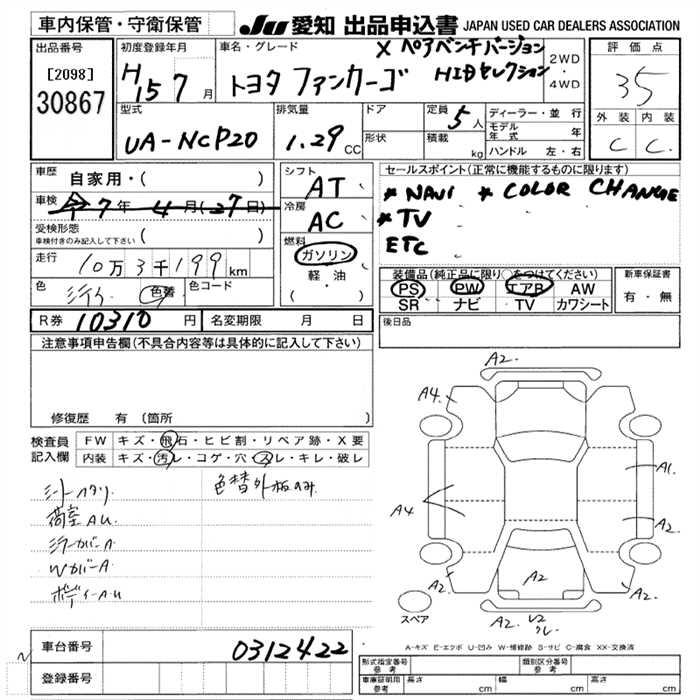 車内保管・守衛保管 JU 愛知 出品申込書 JAPAN USED CAR DEALERS ASSOCIATION
出品番号 初度登録年月 車名・グレード X ペアベンチバージョン 2WD・4WD 評価点
[2098] H15 7月 トヨタ ファンカーゴ HIDセレクション 35
30867 型式 排気量 ドア 定員 5人 ディーラー・並行 外装 内装
UA-NCP20 1.29CC 形状 積載 kg モデル年式 年 C C
ハンドル 左・右
車歴 自家用・( ) シフト AT セールスポイント(正常に機能するものに限ります)
車検 7年 4月(27日) 冷房 AC * NAVI * COLOR CHANGE
受検形態 ( ) * TV
車検付きのみ記入して下さい 燃料 ETC
走行 10万3千199km ガソリン
軽・油 装備品(純正品に限り○をつけてください) 新車保証書
色 色替 色コード ( ) PS PW エアB AW 有・無
SR ナビ TV カワシート
R券 10310円 名変期限 月 日 後日品
注意事項申告欄(不具合内容等は具体的に記入して下さい)
修復歴 有 (箇所
検査員 FW キズ・飛石・ヒビ割・リペア跡・X要
記入欄 内装 キズ・汚レ・コゲ・穴・スレ・キレ・破レ
シートヘタリ 色替外板のみ
荷室AU
ミラーカバーA
WカバーA
ボディーAU
A2.
A4.
A1.
A4
A2.
A2
A2.
A2.
A2.
スペア
A-キズ E-エクボ U-凹み W-補修跡 S-サビ C-腐食 XX-交換済
車台番号 0312422
登録番号
形式指定番号 参考 類別区分番号 参考
車庫証明用 参考 長さ cm 幅 cm 高さ cm